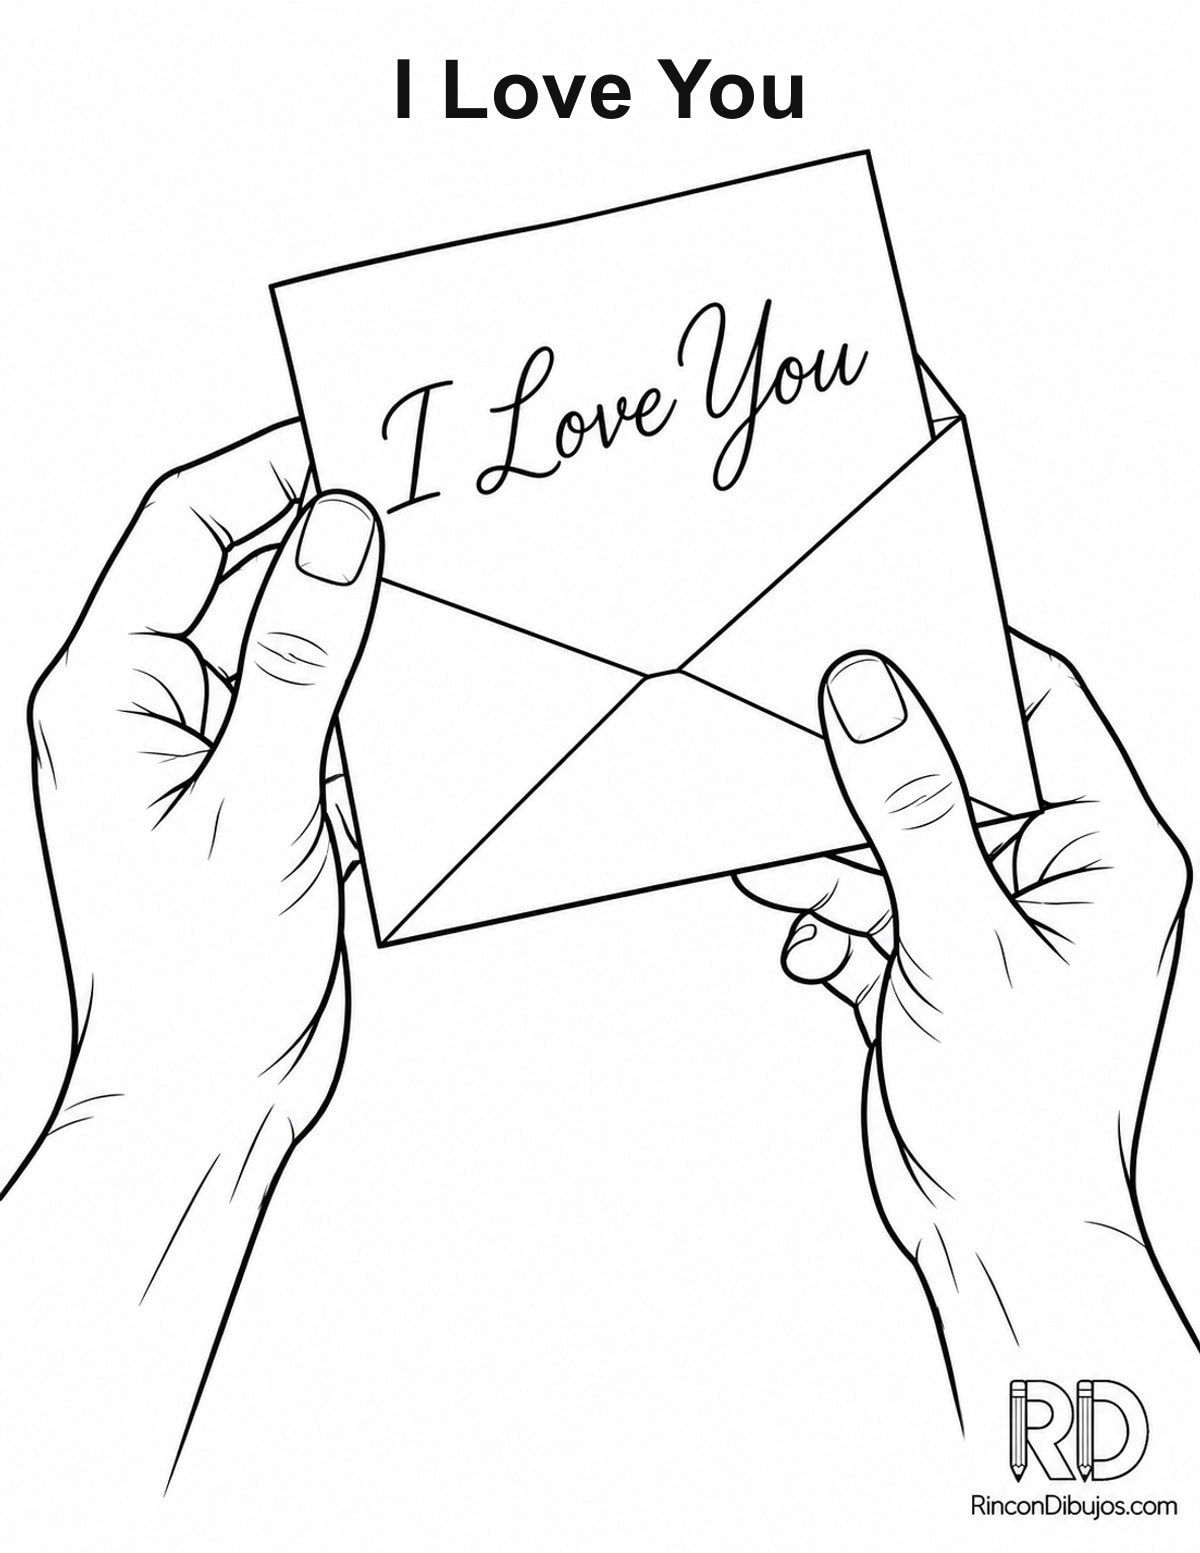 I Love You
I Love You
RD
RinconDibujos.com